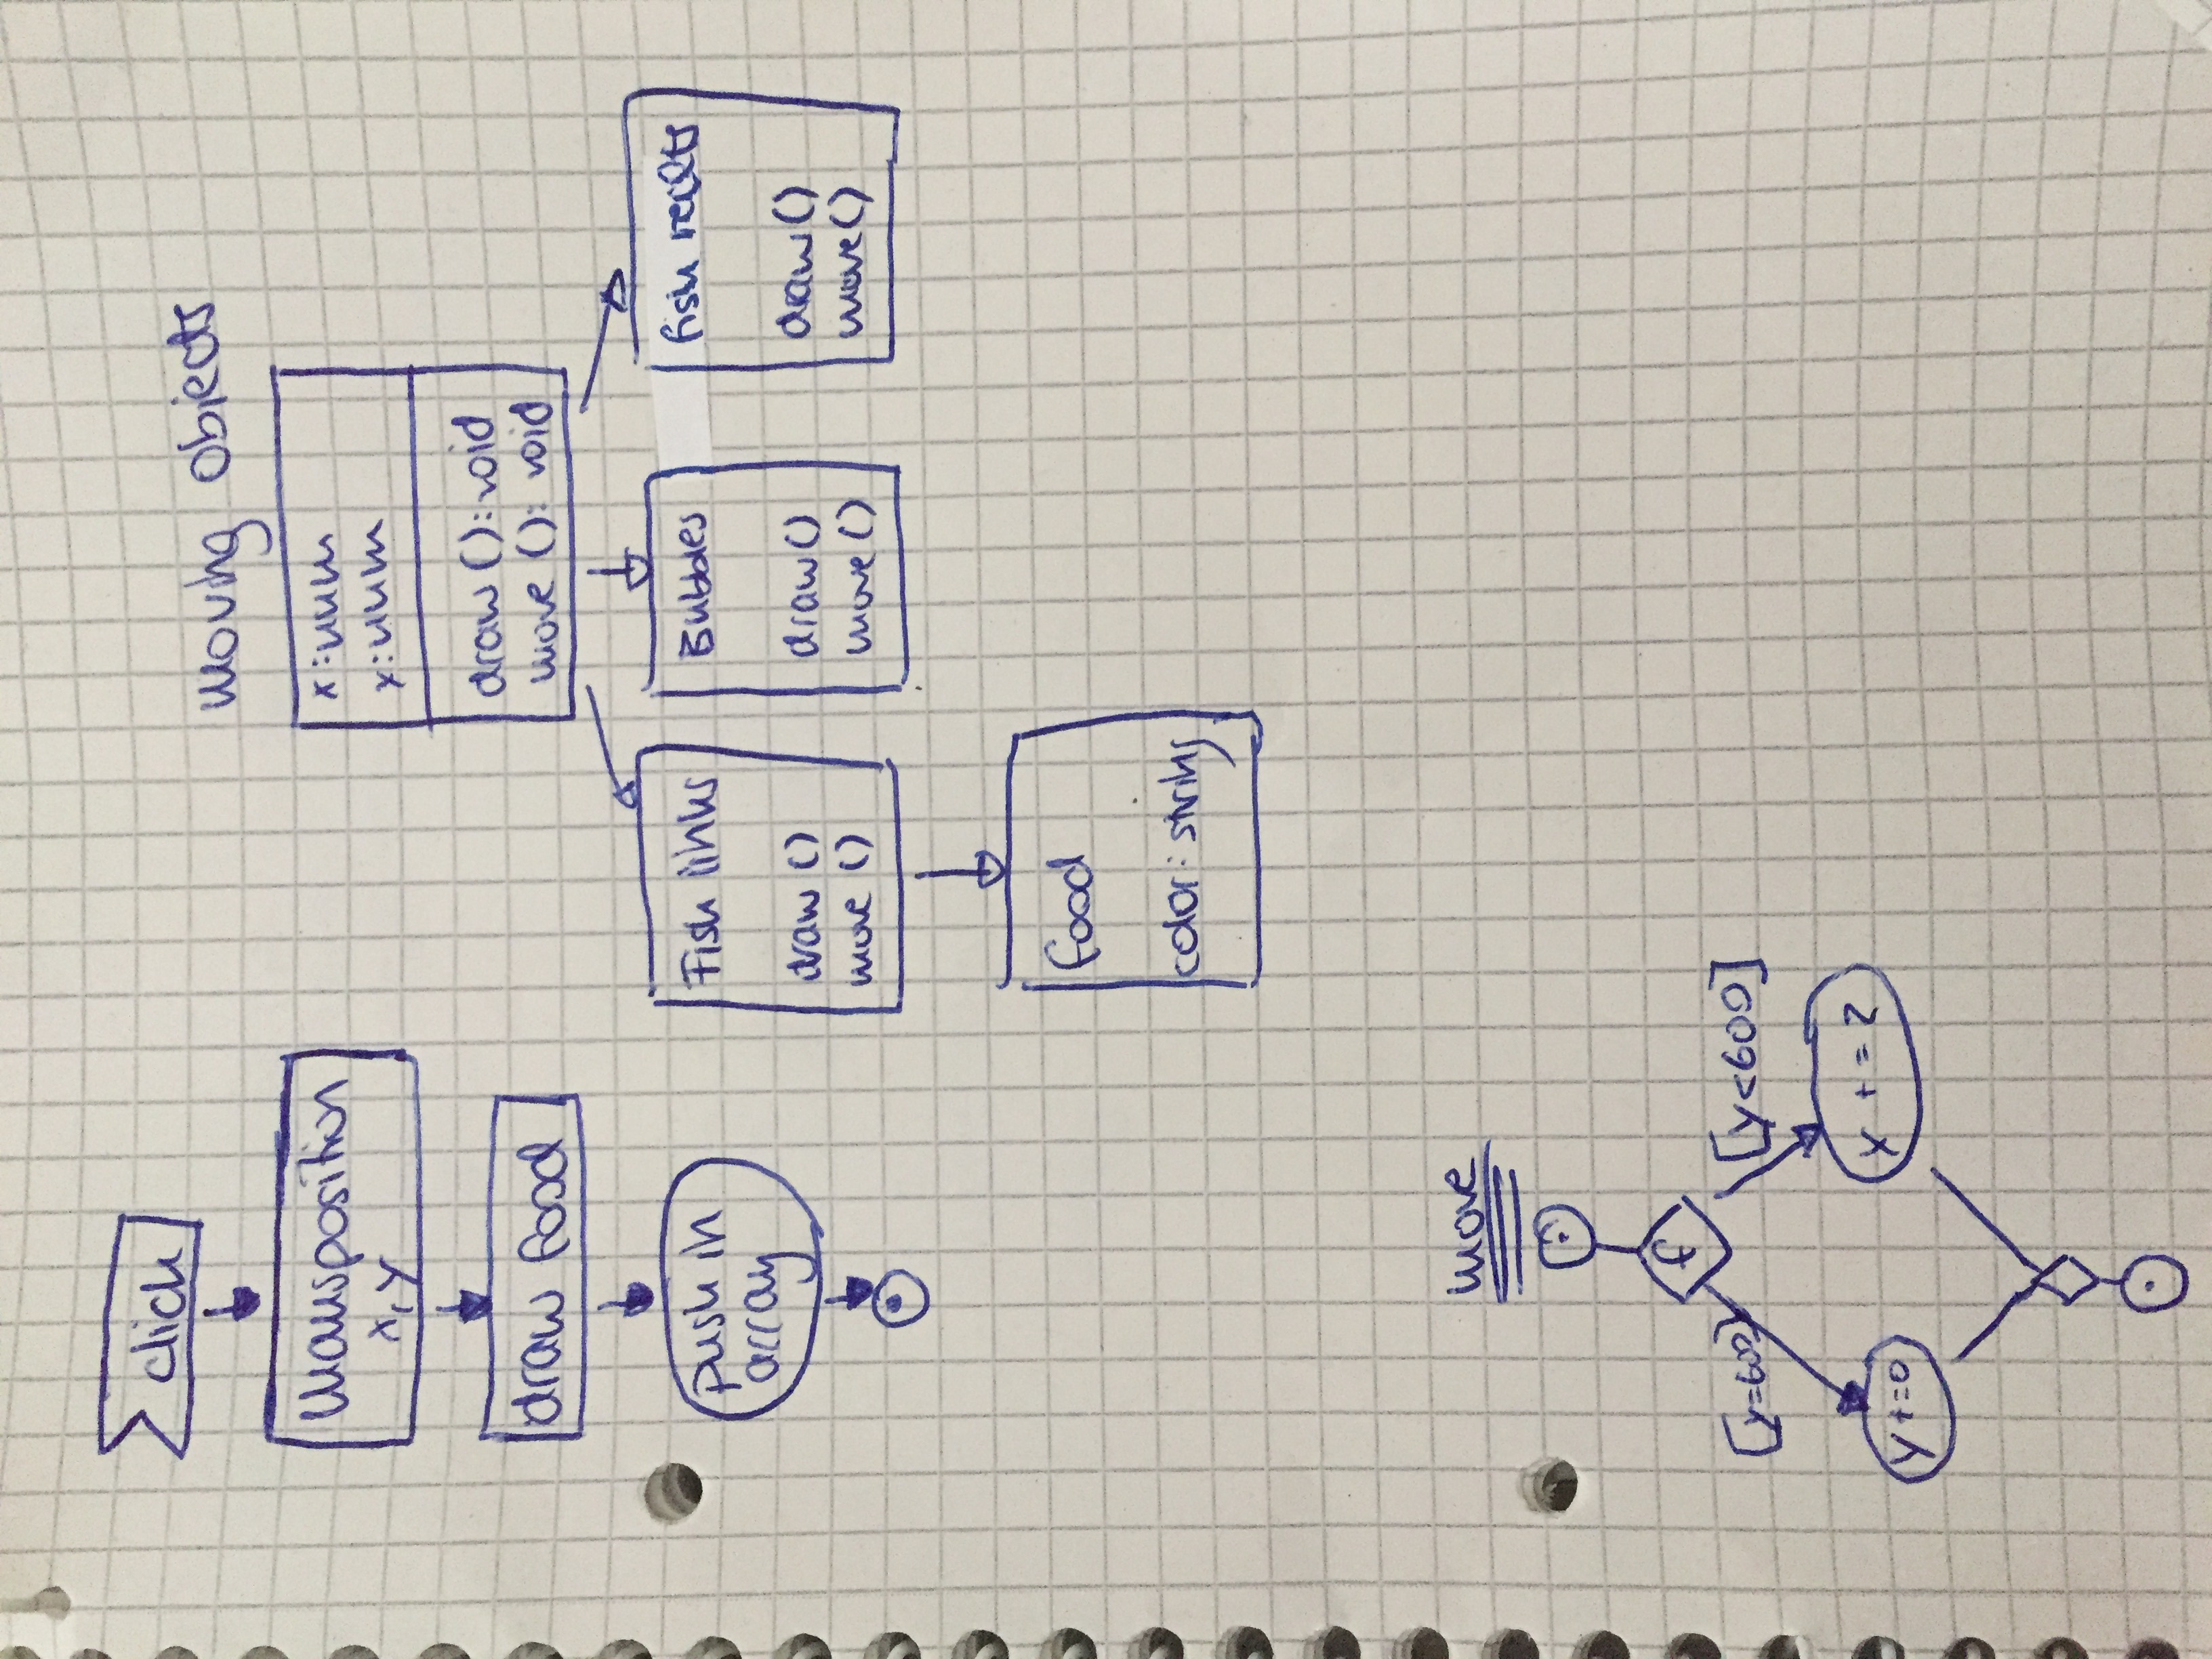 click
Mausposition
x, y
draw food
push in
array
moving objects
x:num
y:num
draw (): void
move (): void
Fish links
draw ()
move ()
Bubbles
draw()
move()
fish rechts
draw()
move()
food
color: string
move
f
[y=600]
[y<600]
y +=0
y += 2